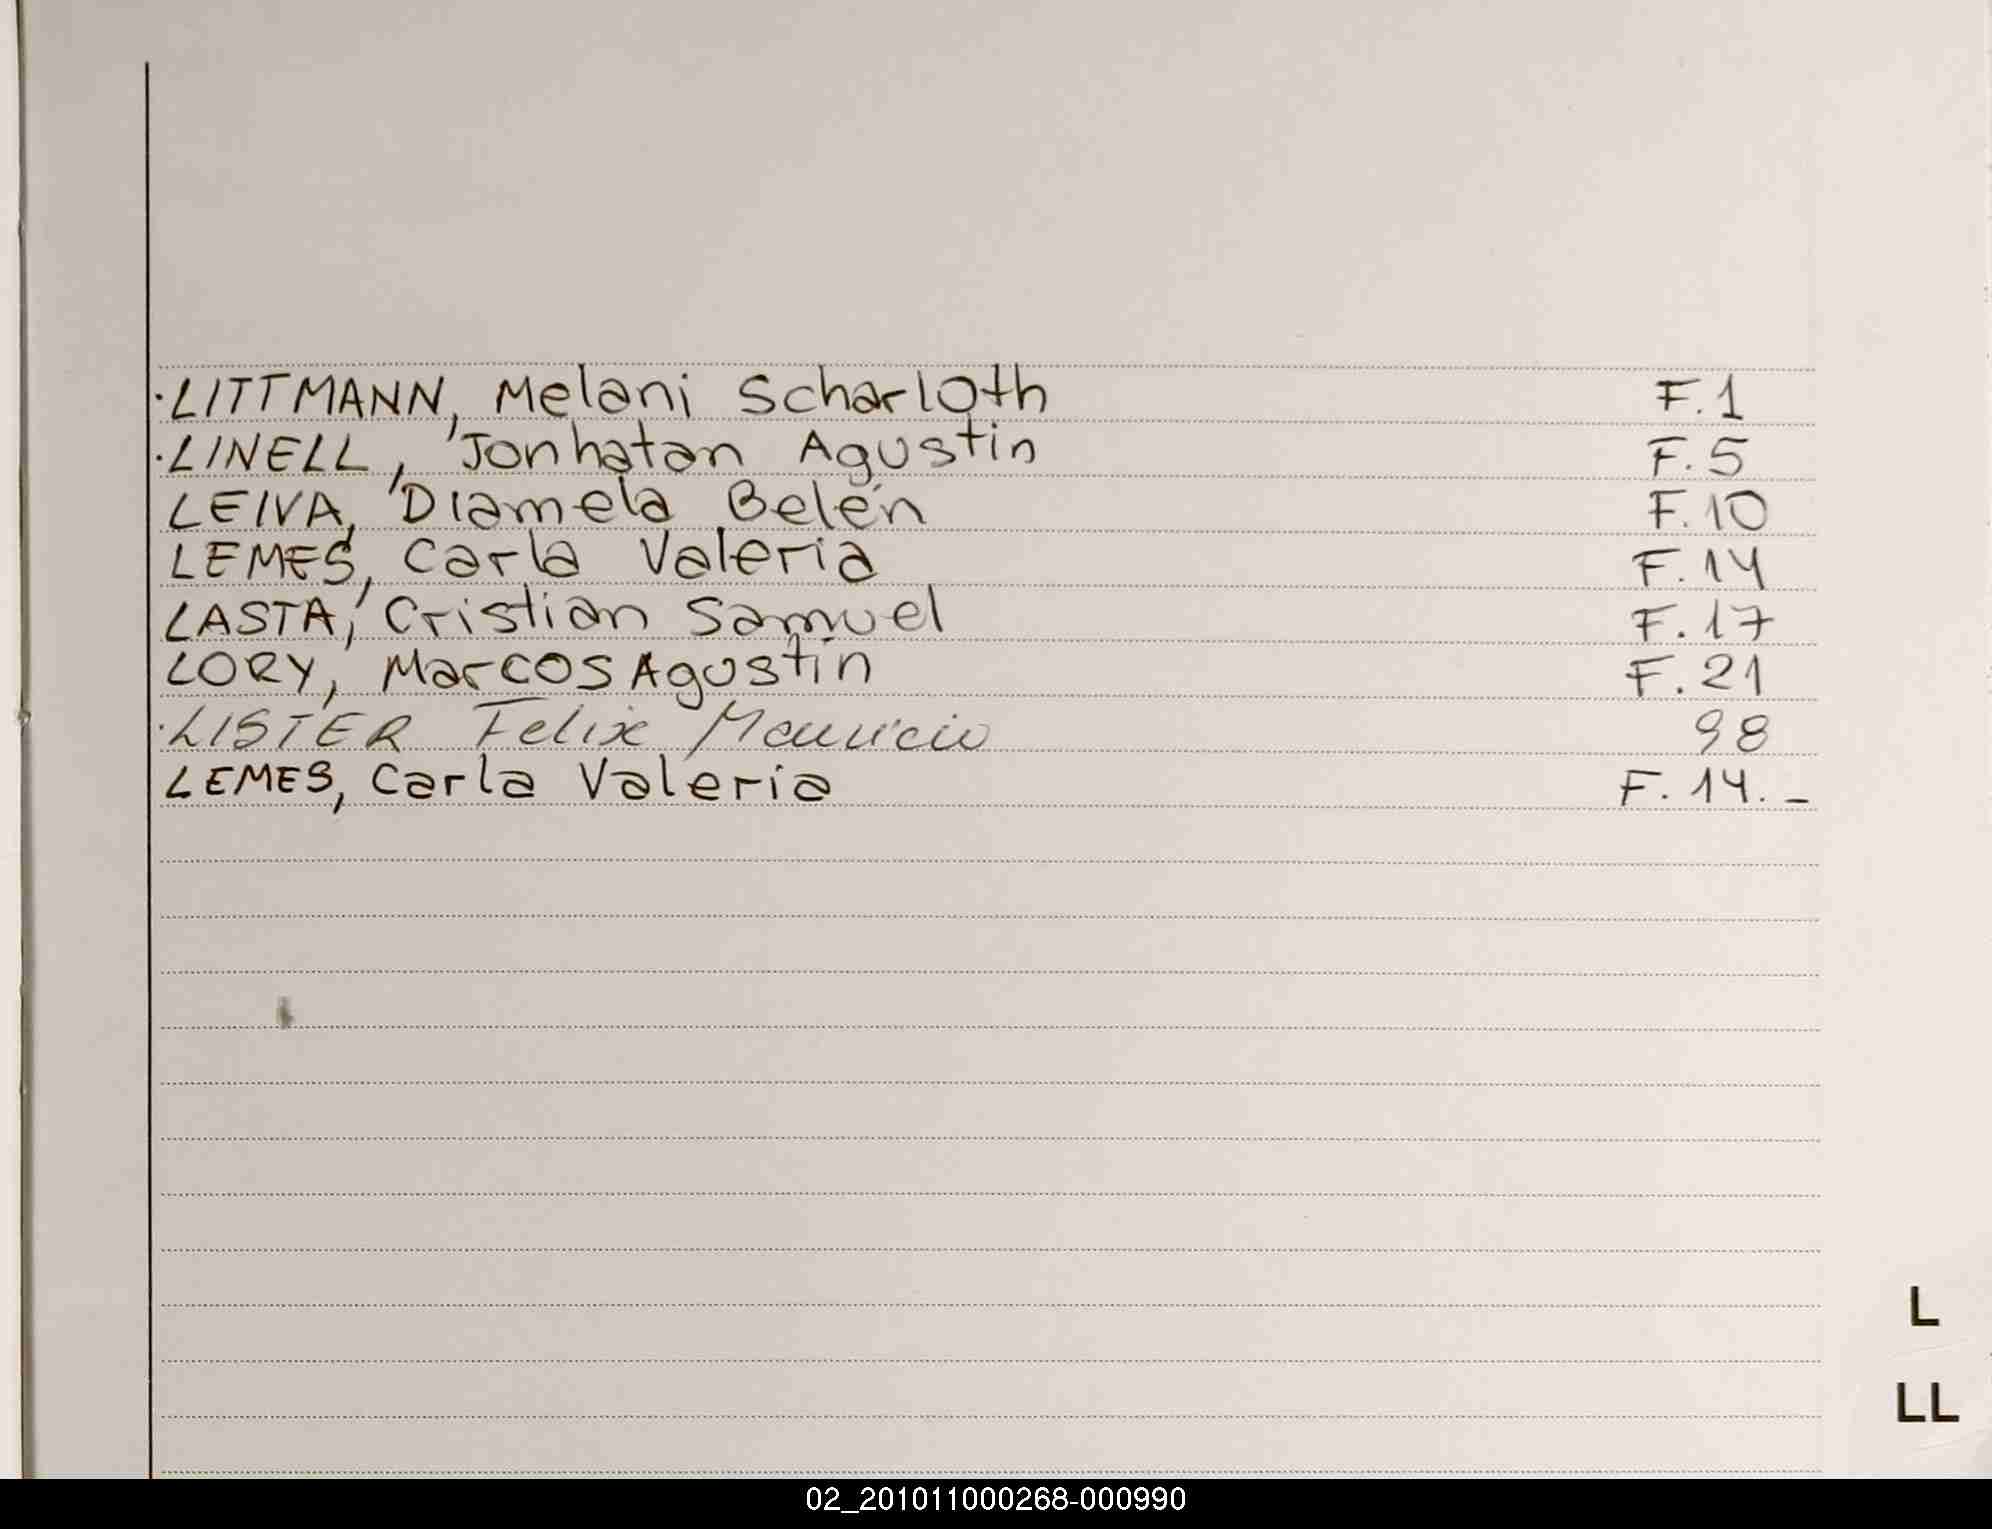 ·LITTMANN, Melani Scharloth F.1
·LINELL, Jonhatan Agustin F.5
LEIVA, Diamela Belén F.10
LEMES, Carla Valeria F.14
LASTA, Cristian Samuel F.17
LORY, Marcos Agustin F.21
·LISTER Felix Mauricio 98
LEMES, Carla Valeria F.14.-
L
LL
02_201011000268-000990